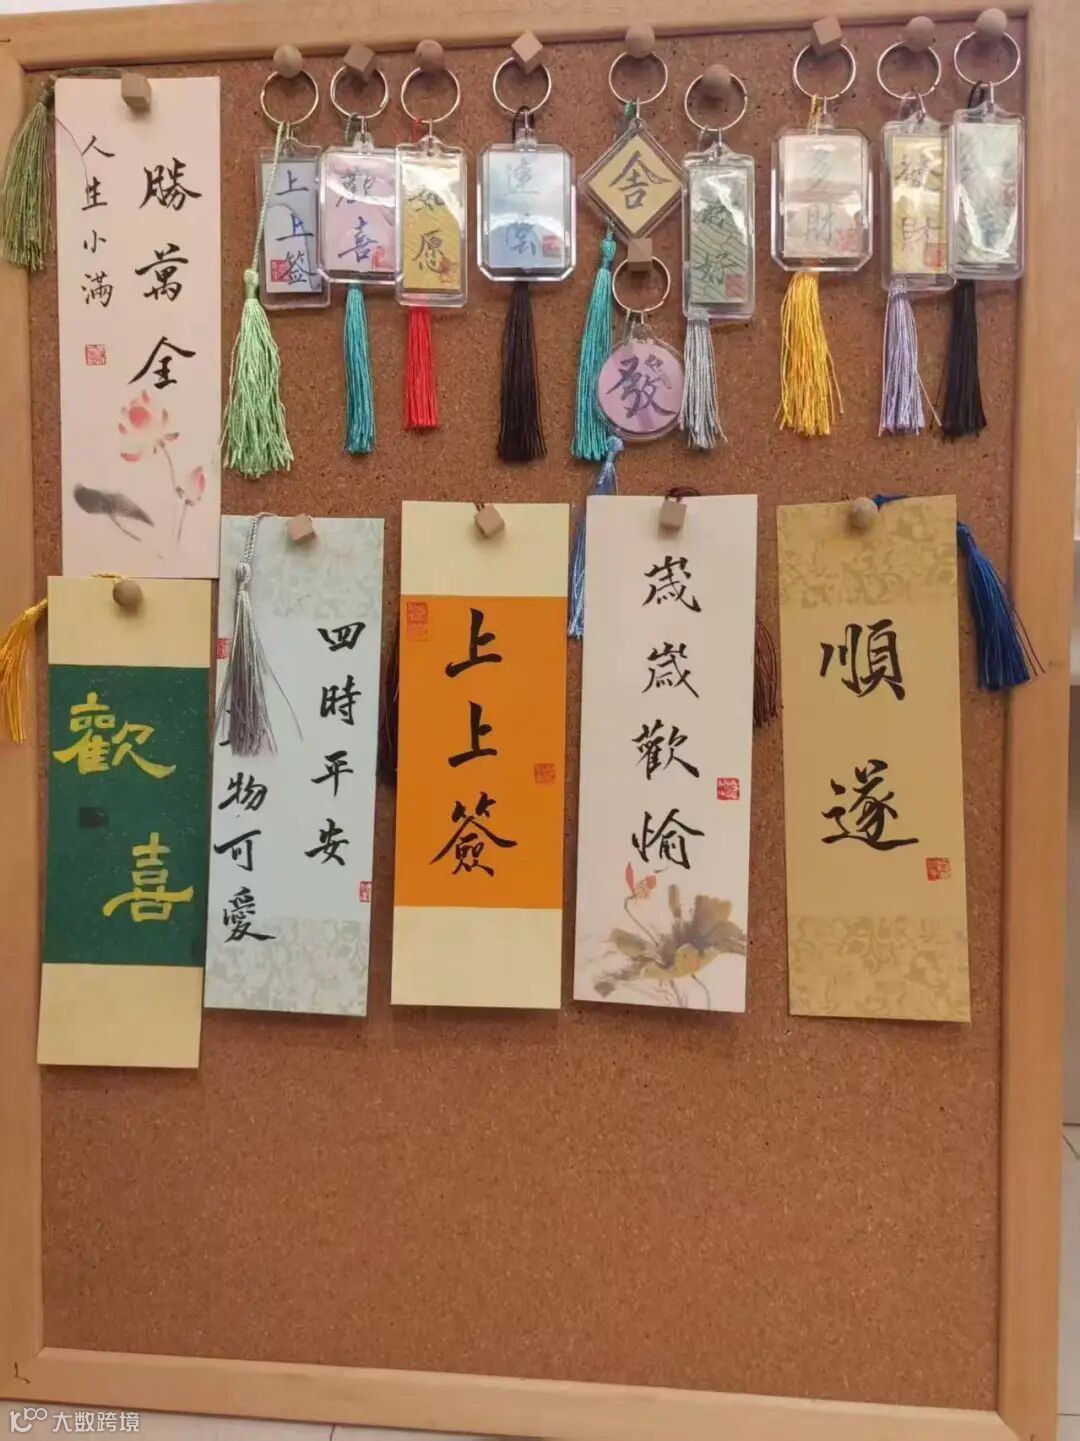 人生小滿
勝萬全
上上签
歡喜
如愿
舍
發
多財
發財
歡喜
四時平安
物可愛
上上簽
歲歲歡愉
順遂
大数跨境